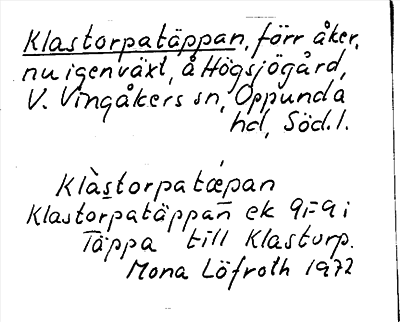 Klastorpatäppan, förr åker,
nu igenväxt, å Högsjögård,
V. Vingåkers sn, Oppunda
hd, Söd.l.
Klàstorpatǽpan
Klastorpatäppan ek 9ī-9 i
Täppa till Klastorp.
Mona Löfroth 1972